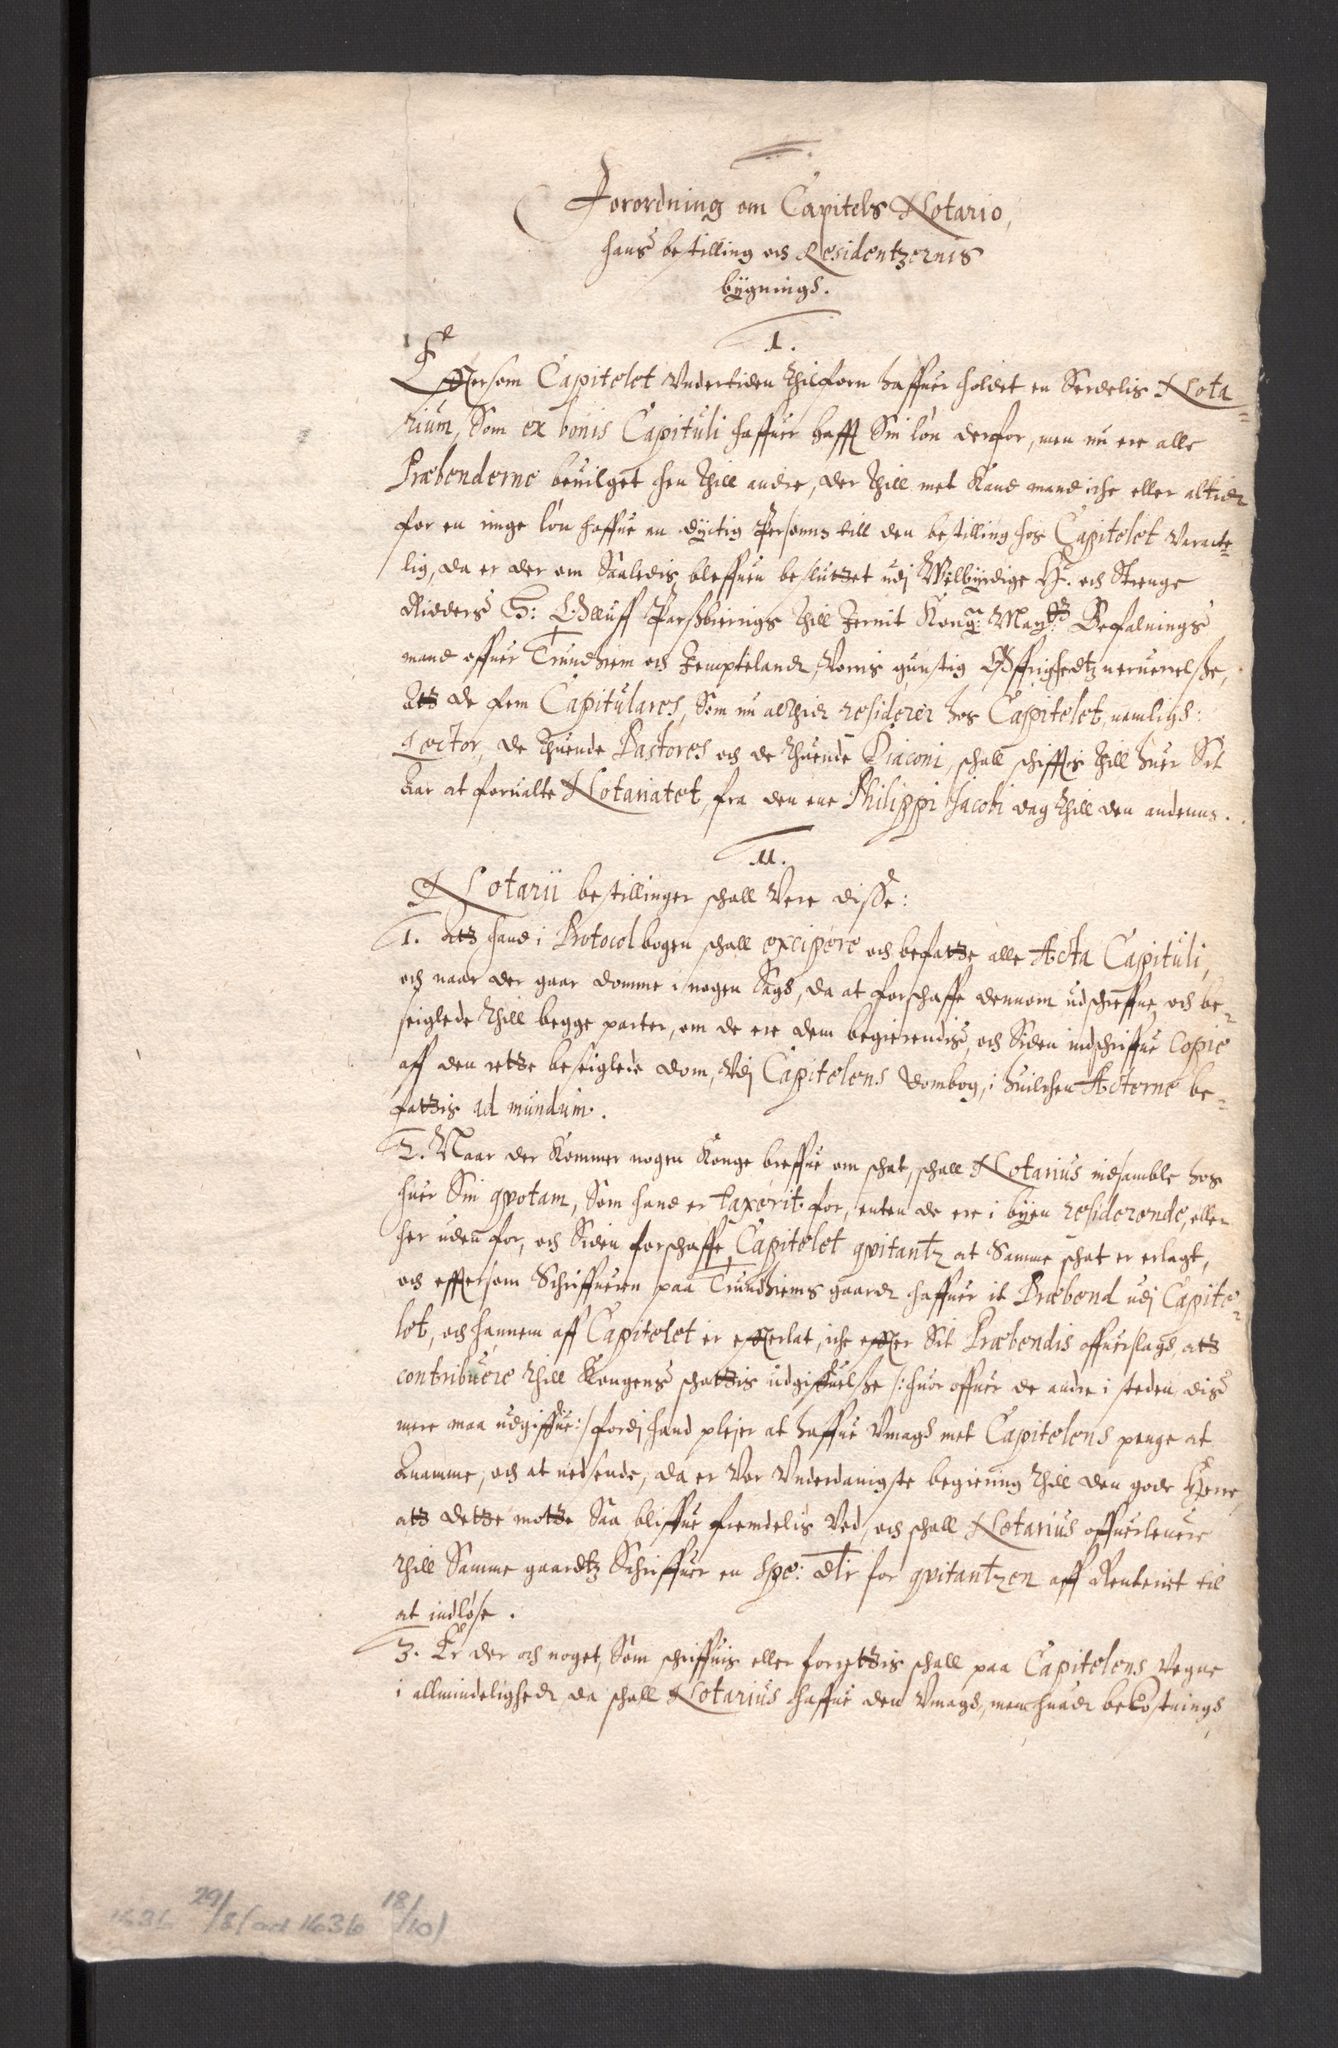 Forordning om Capitels Notario,
hans bestilling och Residentzernis
bygnings.
1.
Efftersom Capitelet Vndertiden thilforn haffuer holdet en Serdelis Nota=
rium, Som ex bonis Capituli haffuer hafft Sin løn derfor, men nu ere alle
Præbenderne beuilget hen thill andre, der thill met Kand mand iche eller altidt
for en ringe løn haffue en dyctig Persoenn till den bestilling hos Capitelet Varacte=
lig, da er der om Saaledis bleffuen besluttet udj Welbyrdige H. och Strenge
Ridders H: Oluff Parssbiergs thill Jernit Kong: May:ts Befalnings
mand offuer Trundhiem och Jempteland, Voris gunstig Øffrighedtz neruerelse,
Att de fem Capitulares, Som nu altzid residerer hos Capitelet, nemligs:
Lector, de thuende Pastores och de thuende Diaconi, schall schifftis thill huer Sit
Aar at foruallte Notariatet, fra den ene Philippi Jacobi dag thill den andenn.
11.
Notarii bestillinger schall Vere disse:
1. Att hand i Protocol bogen schall excipere och befatte alle Acta Capituli,
och naar der gaar domme i nogen Sags, da at forschaffe dennom udschreffne och be=
seiglede thill begge parter, om de ere dem begierendis, och Siden indschriffue Copie
aff den rette beseiglede dom, Vdj Capitelens dombog, i huilchen Acterne be=
fattis ad mundum.
2. Naar der Kommer nogen Konge breffue om schat, schall Notarius indsamble hos
huer Sin qvotam, Som hand er taxerit for, enten de ere i byen residerende, eller
her uden for, och Siden forschaffe Capitelet qvitantz at Samme schat er erlagt,
och efftersom Schriffueren paa Trundhiems gaardt haffuer it Præbend udj Capite=
let, och hannem aff Capitelet er efftterlat, iche effter Sit Præbendis offuerslags, att
contribuere thill Kongens schattis udgiffuelse /: huor offuer de andre i steden dis
mere maa udgiffue :/ fordj hand plejer at haffue Vmags met Capitelens penge at
Anamme, och at nedsende, da er Vor Vnderdanigste begiering thill den gode Herre,
att dette motte Saa bliffue fremdelis Ved, och schall Notarius offuerleuere
thill Samme gaardtz Schriffuer en Spe: dlr for qvitantzen aff Renteriet til
at indløse.
3. Er der och noget, Som schriffuis eller forrettis schall paa Capitelens Vegne
i allmindelighedt, da schall Notarius haffue den Vmags, men huadt bekostnings
1636 29/8 (ad 1636 18/10)